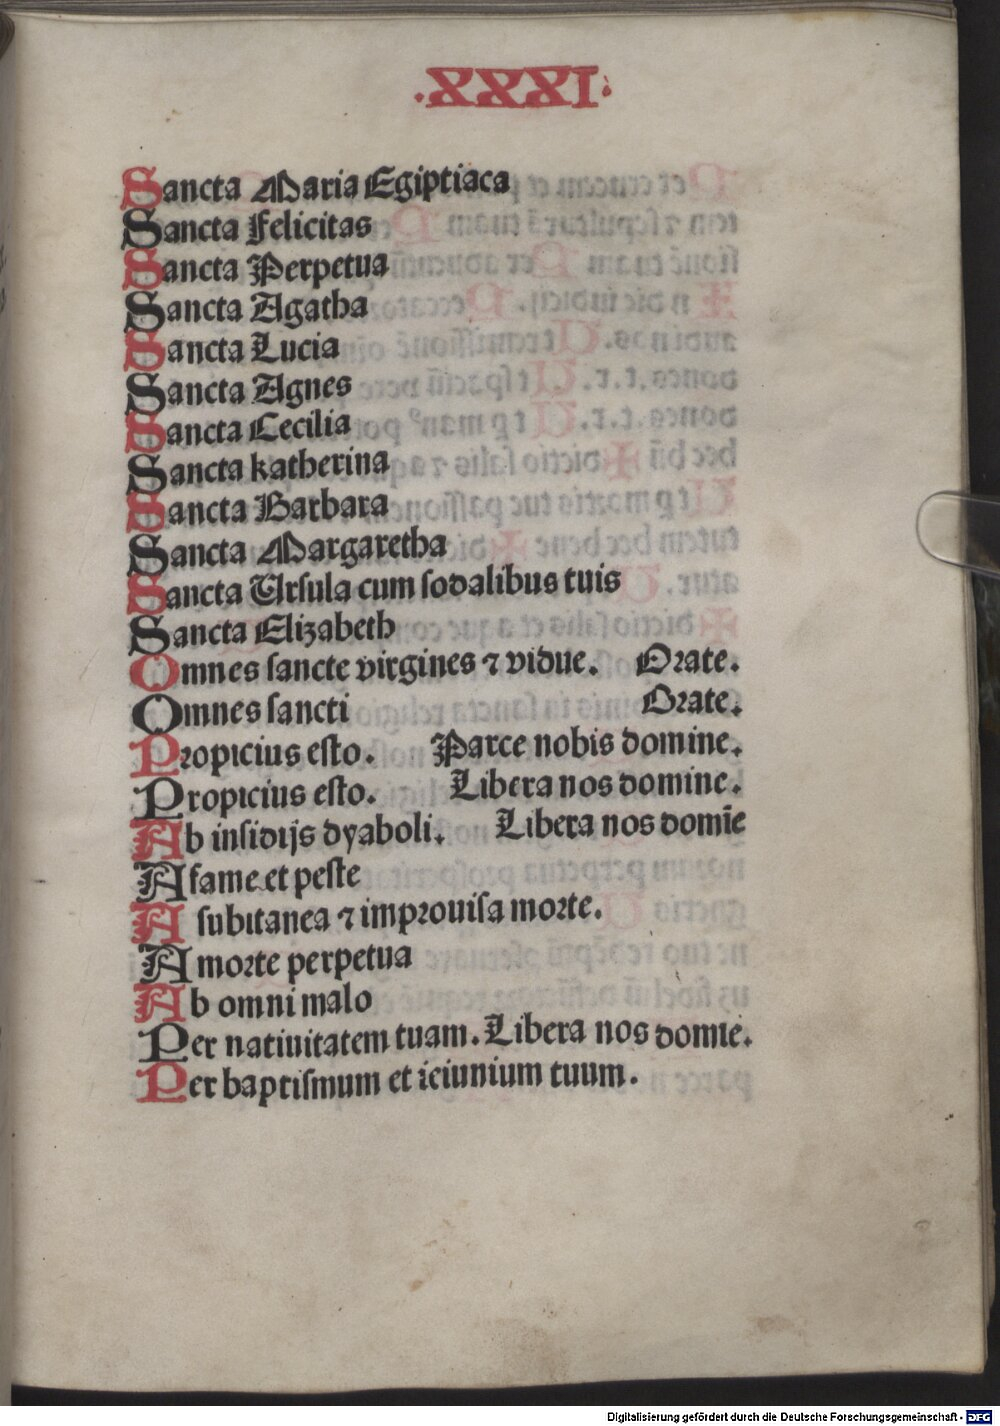 ·XXXI·
Sancta Maria Egiptiaca
Sancta Felicitas
Sancta Perpetua
Sancta Agatha
Sancta Lucia
Sancta Agnes
Sancta Cecilia
Sancta katherina
Sancta Barbara
Sancta Margaretha
Sancta Ursula cum sodalibus tuis
Sancta Elizabeth
Omnes sancte virgines ⁊ vidue. Orate.
Omnes sancti Orate.
Propicius esto. Parce nobis domine.
Propicius esto. Libera nos domine.
Ab insidijs dyaboli. Libera nos domīe
A fame et peste
A subitanea ⁊ improuisa morte.
A morte perpetua
Ab omni malo
Per natiuitatem tuam. Libera nos domīe.
Per baptismum et ieiunium tuum.
Digitalisierung gefördert durch die Deutsche Forschungsgemeinschaft - DFG